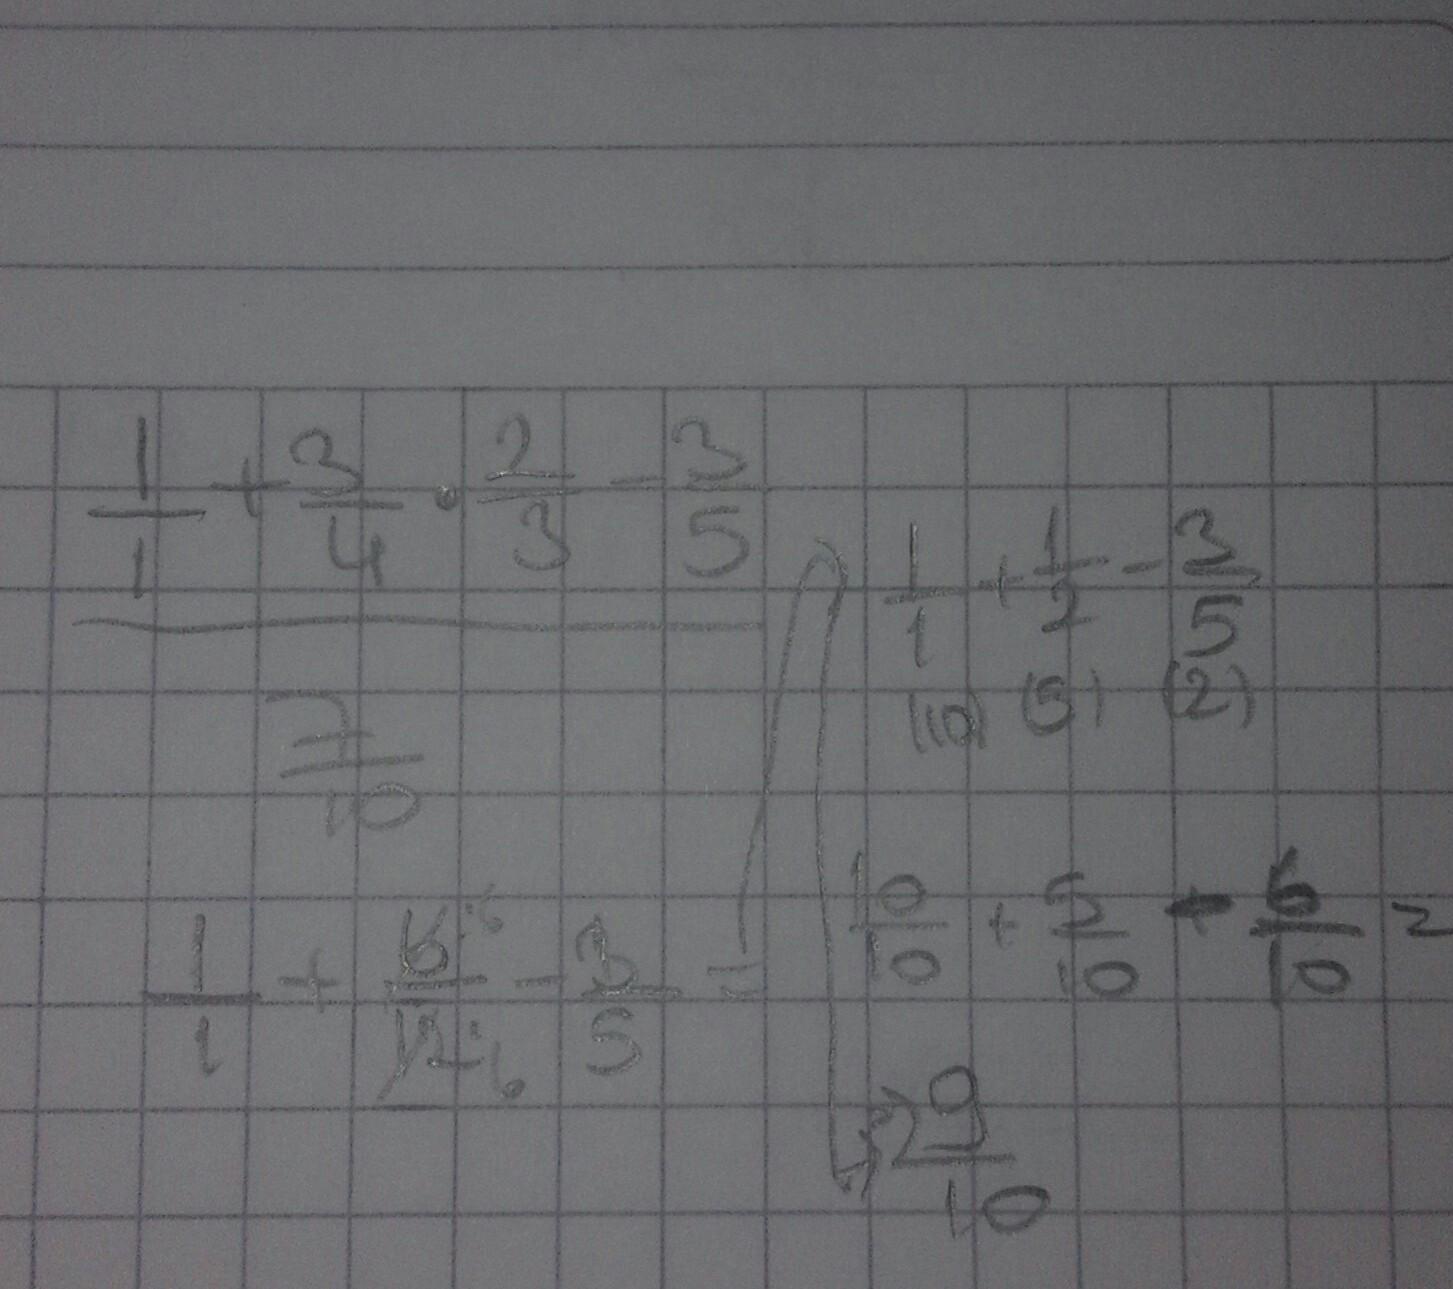 1/1 + 3/4 · 2/3 - 3/5
7/10
1/1 + 6:6/12:6 - 3/5 =
1/1 + 1/2 - 3/5
(10) (5) (2)
10/10 + 5/10 - 6/10 =
9/10